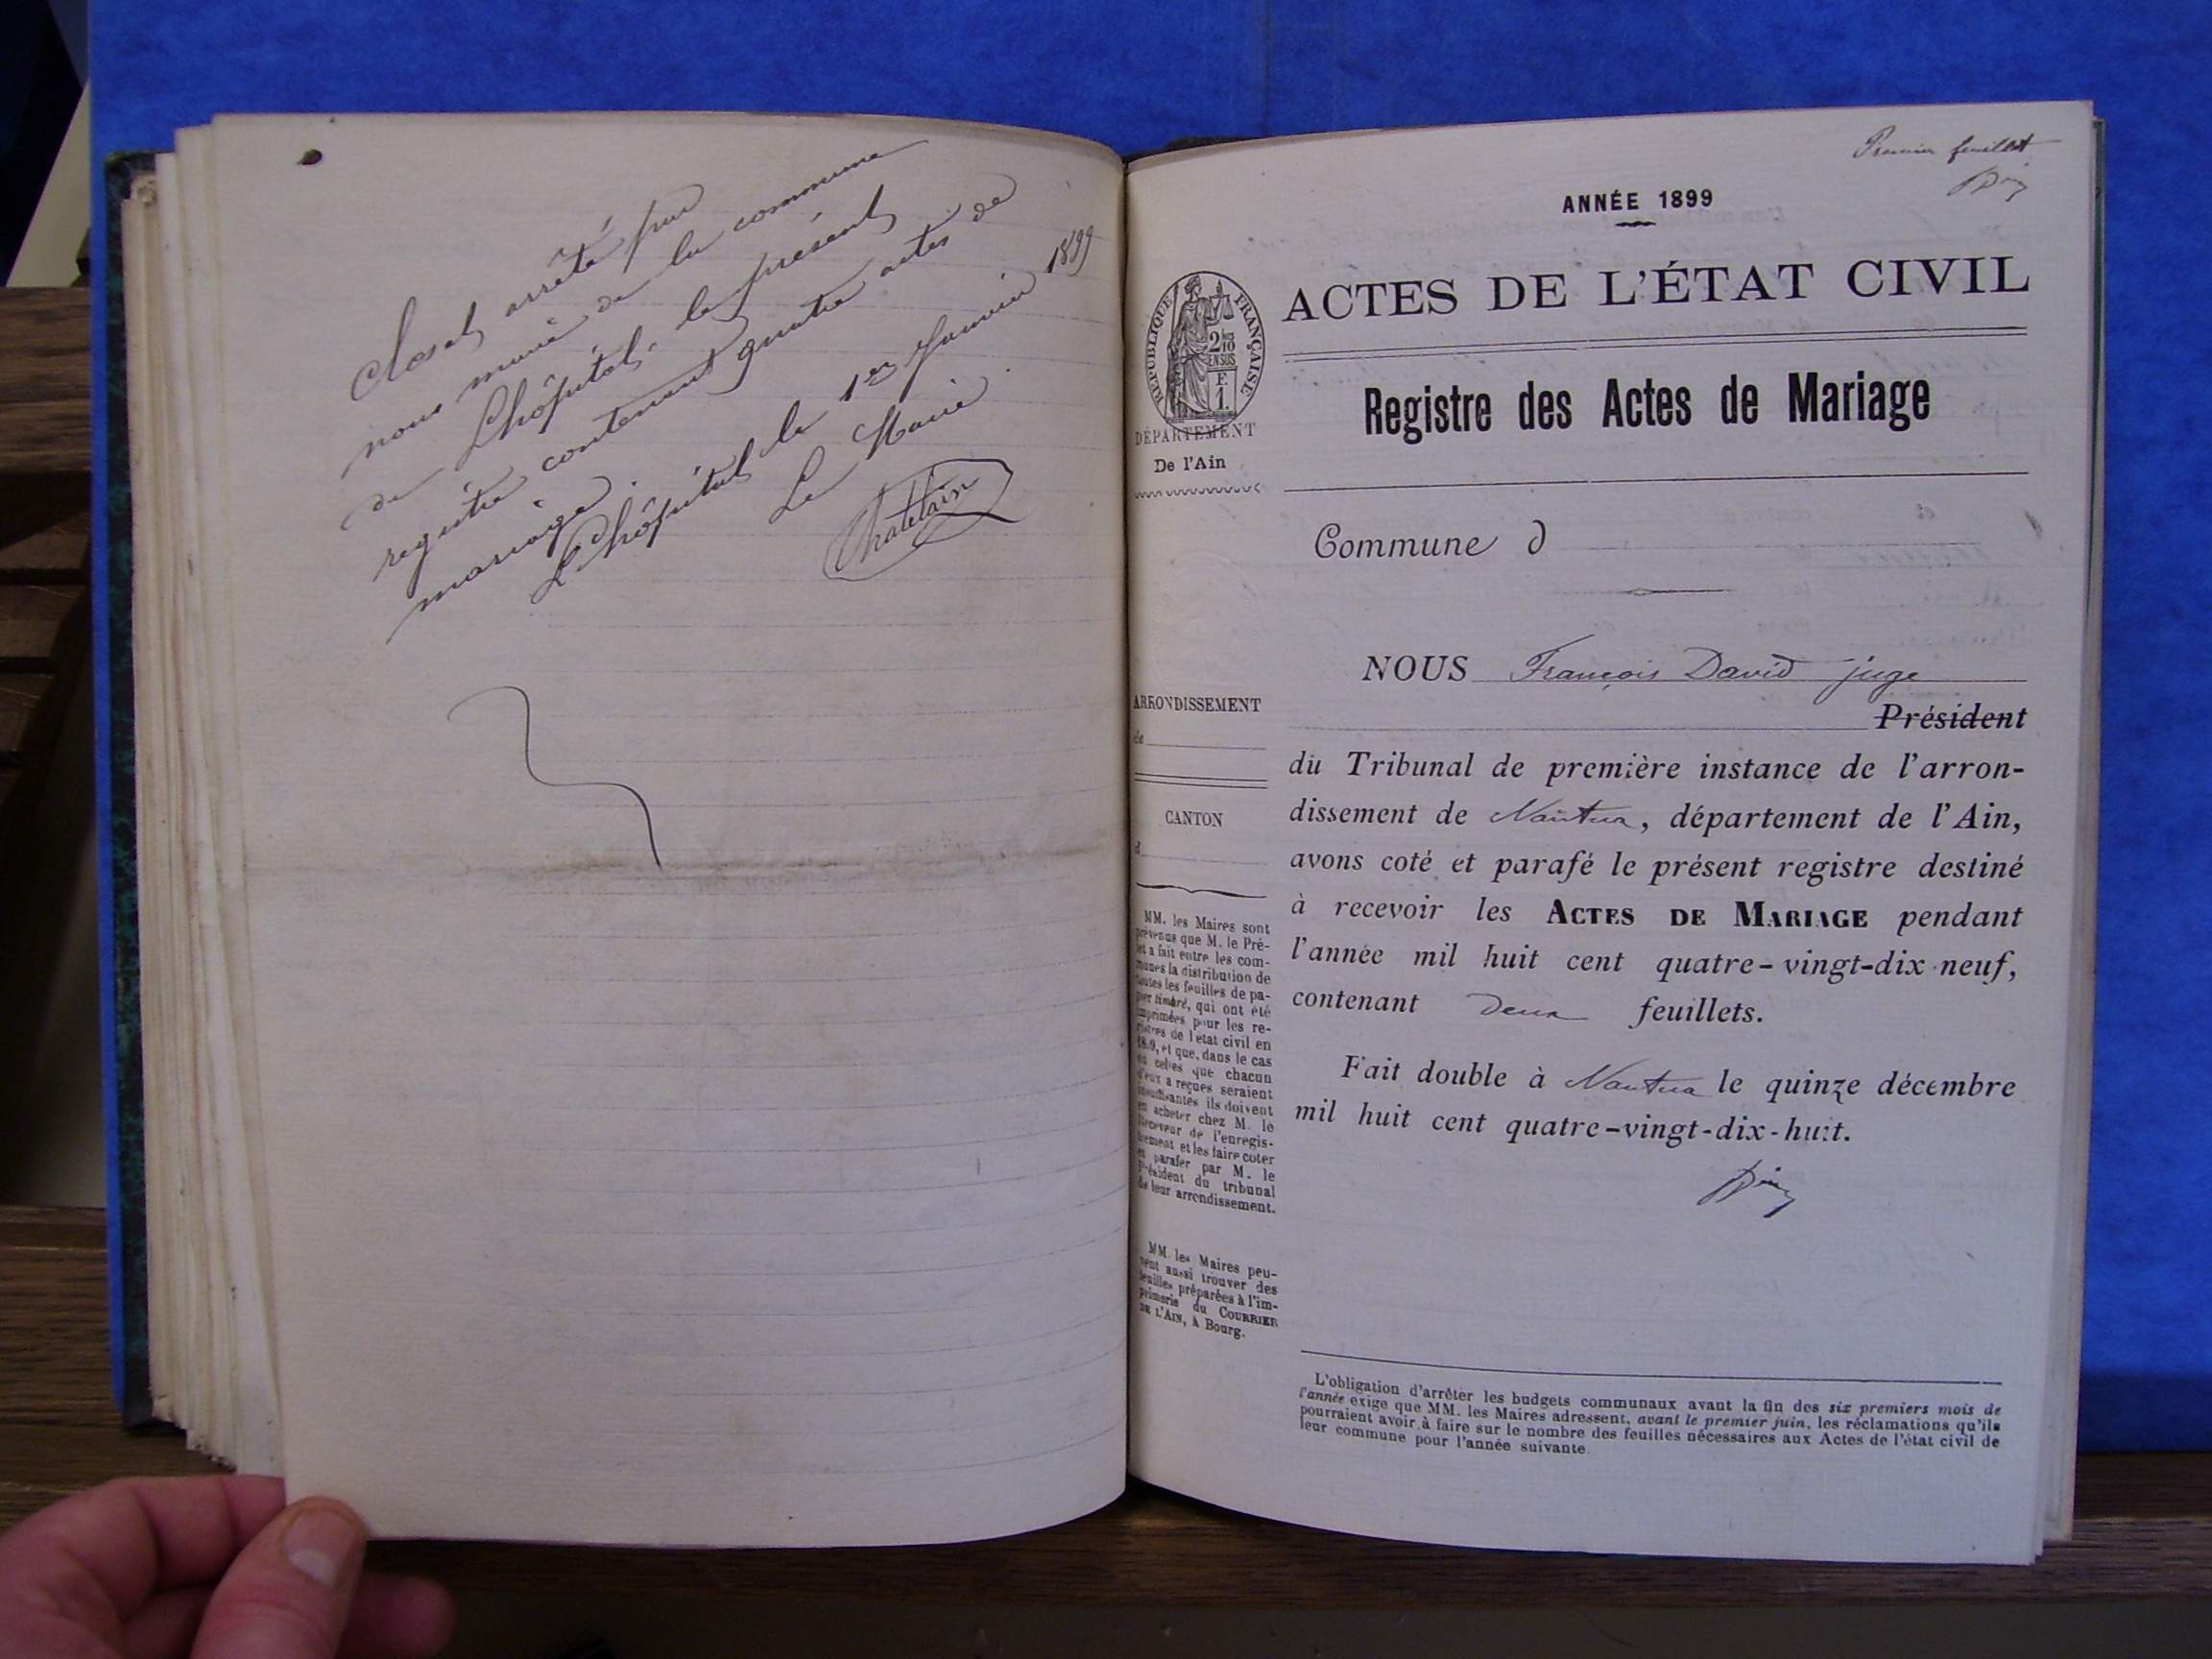 Clos et arrêté par
nous maire de la commune
de Lhôpital, le présent
registre contenant quatre actes de
mariage.
Lhôpital le 1er Janvier 1899
Le Maire
Chatelain
Premier feuillet
ANNÉE 1899
ACTES DE L'ÉTAT CIVIL
RÉPUBLIQUE FRANÇAISE
2 10
EN SUS
E
1.
DÉPARTEMENT
De l'Ain
Registre des Actes de Mariage
Commune d
NOUS François David juge
Président
du Tribunal de première instance de l'arron-
dissement de Nantua, département de l'Ain,
avons coté et parafé le présent registre destiné
à recevoir les ACTES DE MARIAGE pendant
l'année mil huit cent quatre-vingt-dix-neuf,
contenant deux feuillets.
Fait double à Nantua le quinze décembre
mil huit cent quatre-vingt-dix-huit.
ARRONDISSEMENT
de
CANTON
d
MM. les Maires sont
prévenus que M. le Pré-
fet a fait entre les com-
munes la distribution de
toutes les feuilles de pa-
pier timbré, qui ont été
imprimées pour les re-
gistres de l'état civil en
1899, et que, dans le cas
où celles que chacun
d'eux a reçues seraient
insuffisantes ils doivent
en acheter chez M. le
Receveur de l'enregis-
trement et les faire coter
et parafer par M. le
Président du tribunal
de leur arrondissement.
MM. les Maires peu-
vent aussi trouver des
feuilles préparées à l'im-
primerie du COURRIER
DE L'AIN, à Bourg.
L'obligation d'arrêter les budgets communaux avant la fin des six premiers mois de
l'année exige que MM. les Maires adressent, avant le premier juin, les réclamations qu'ils
pourraient avoir à faire sur le nombre des feuilles nécessaires aux Actes de l'état civil de
leur commune pour l'année suivante.